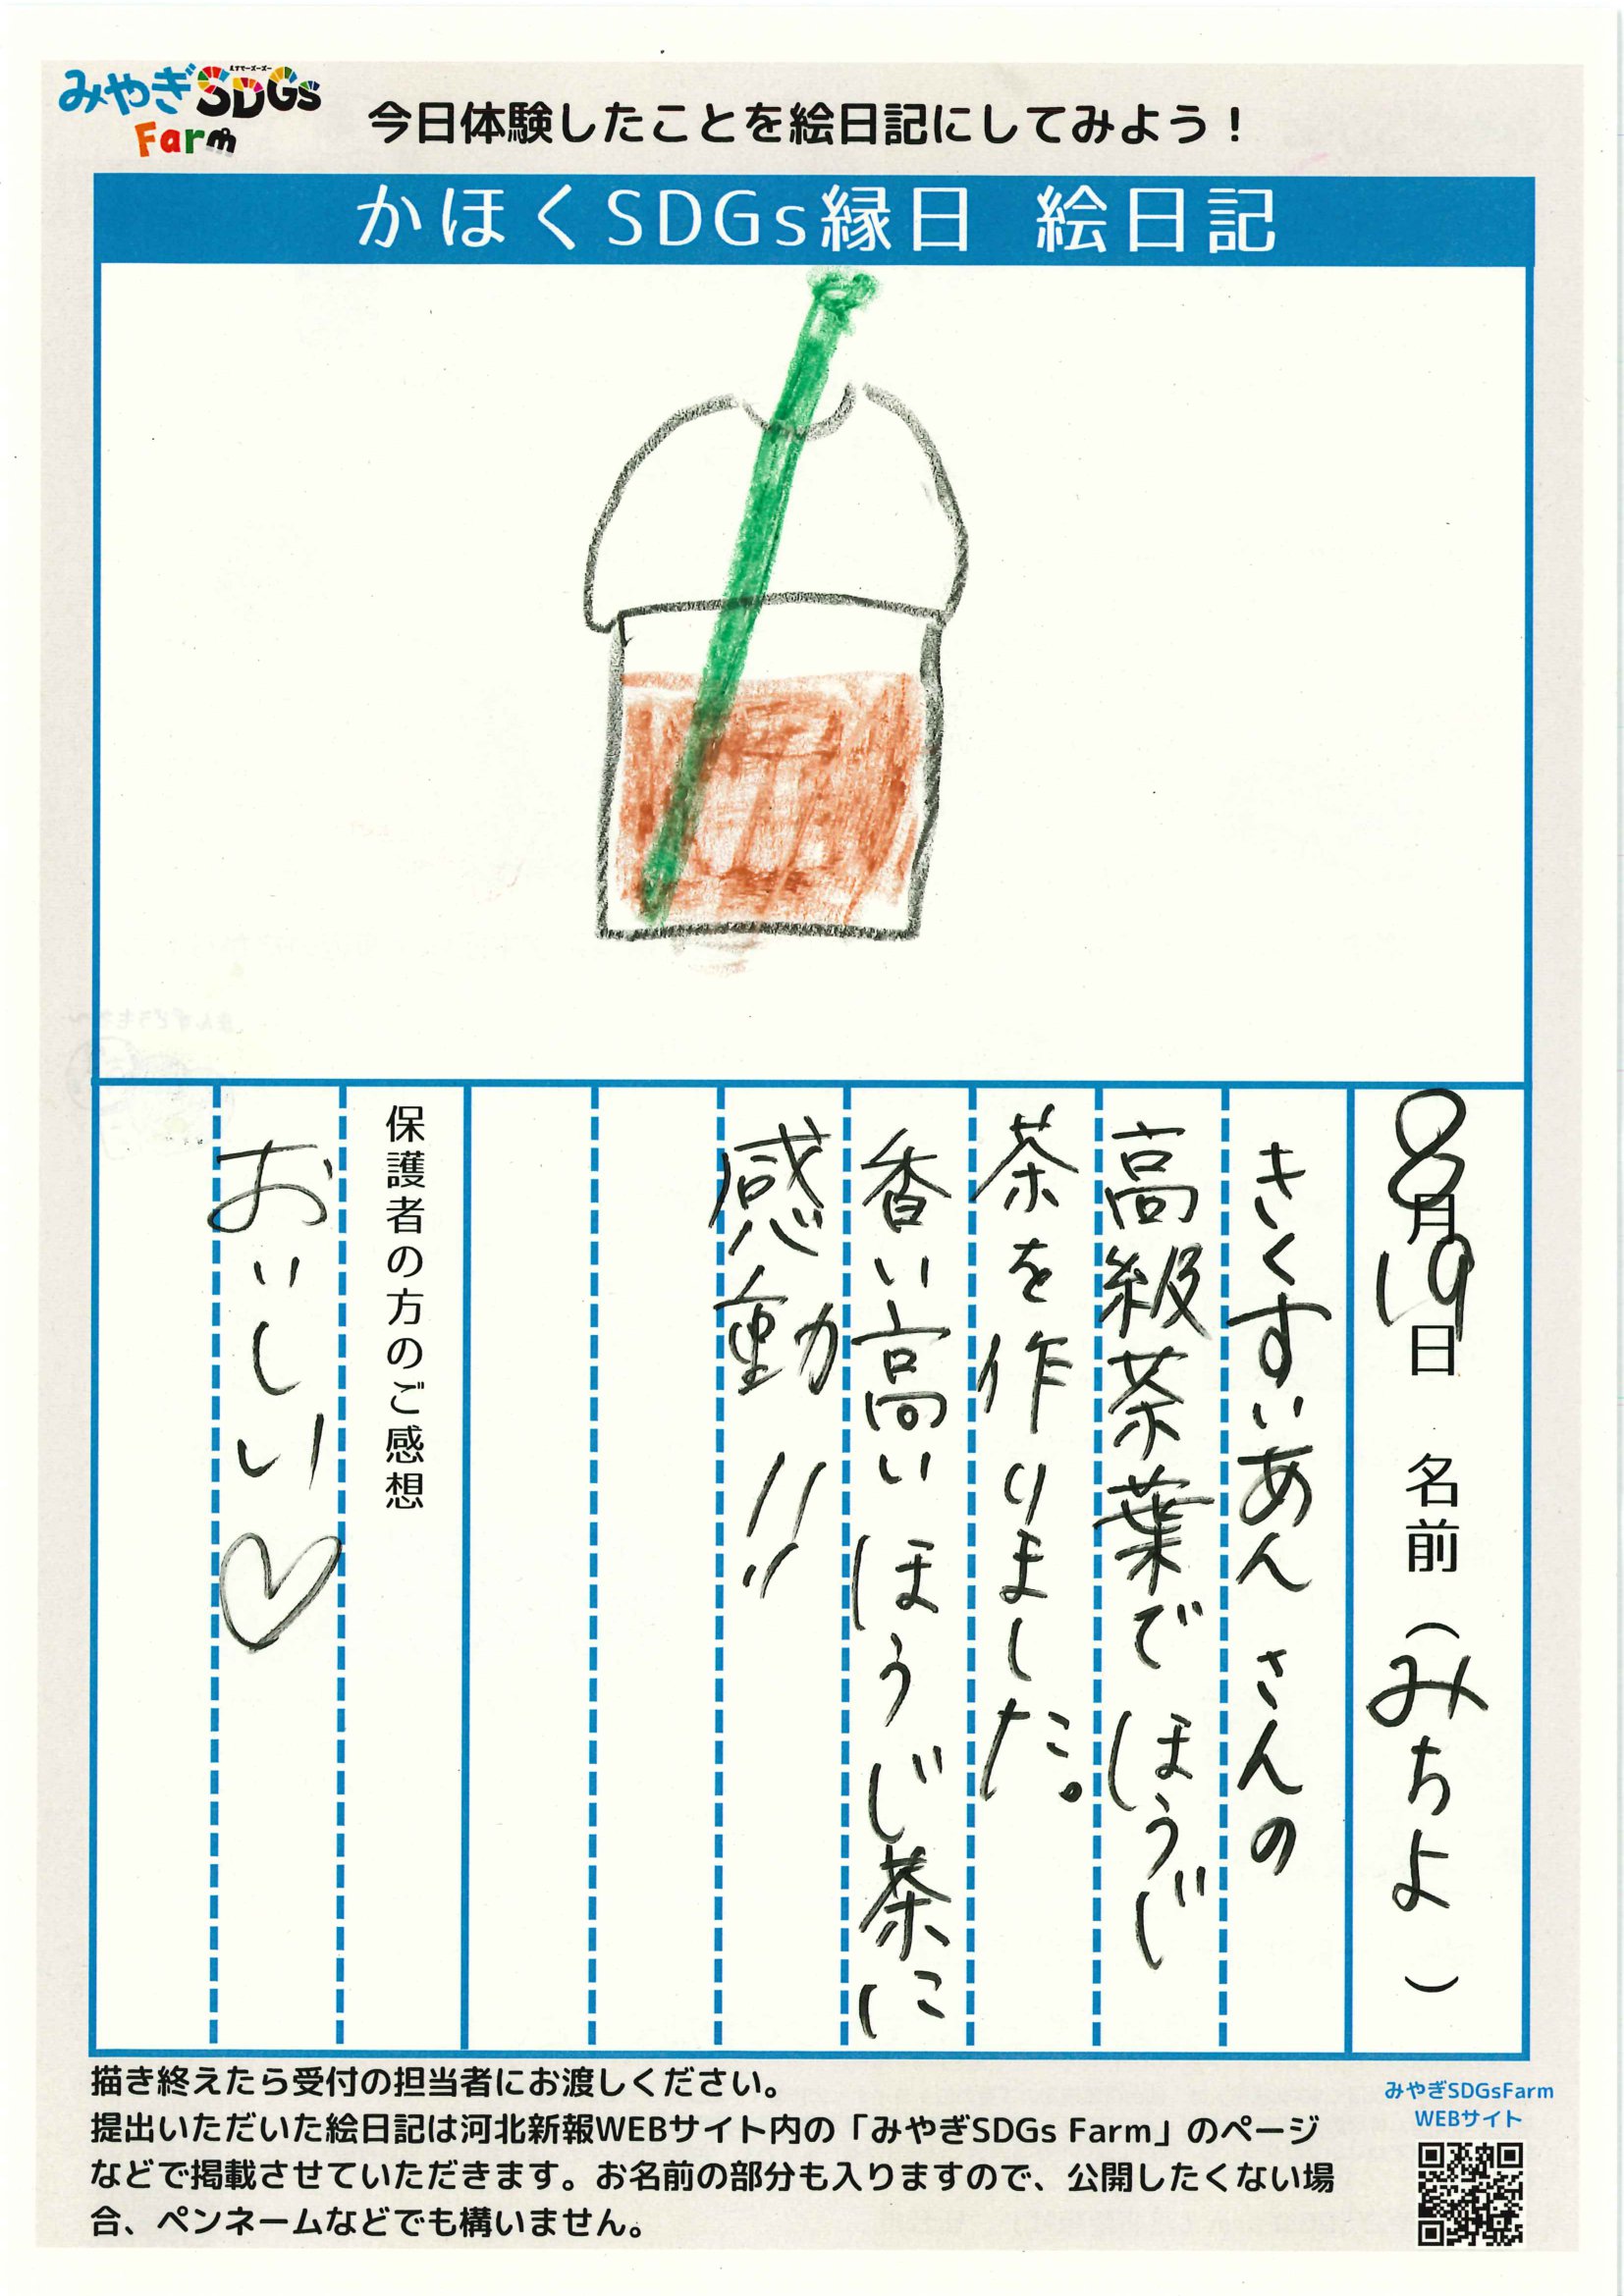 みやぎSDGs
エスディージーズ
Farm
今日体験したことを絵日記にしてみよう！
かほくSDGs縁日 絵日記
8月19日 名前（みちよ）
きくすいあん さんの
高級茶葉で ほうじ
茶を作りました。
香い高い ほうじ茶に
感動!!
保護者の方のご感想
おいしい♡
描き終えたら受付の担当者にお渡しください。
提出いただいた絵日記は河北新報WEBサイト内の「みやぎSDGs Farm」のページ
などで掲載させていただきます。お名前の部分も入りますので、公開したくない場
合、ペンネームなどでも構いません。
みやぎSDGsFarm
WEBサイト